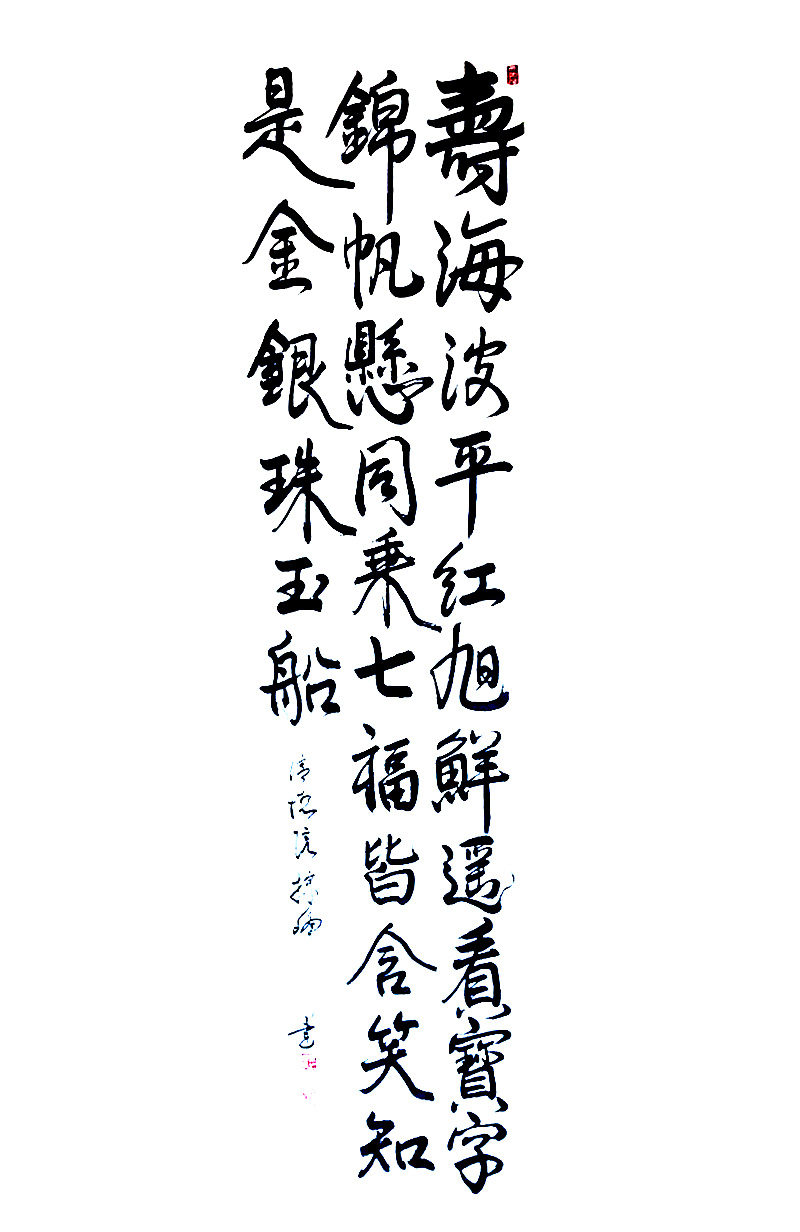 壽海波平紅旭鮮遥看寶字
錦帆懸同乗七福皆含笑知
是金銀珠玉船
書